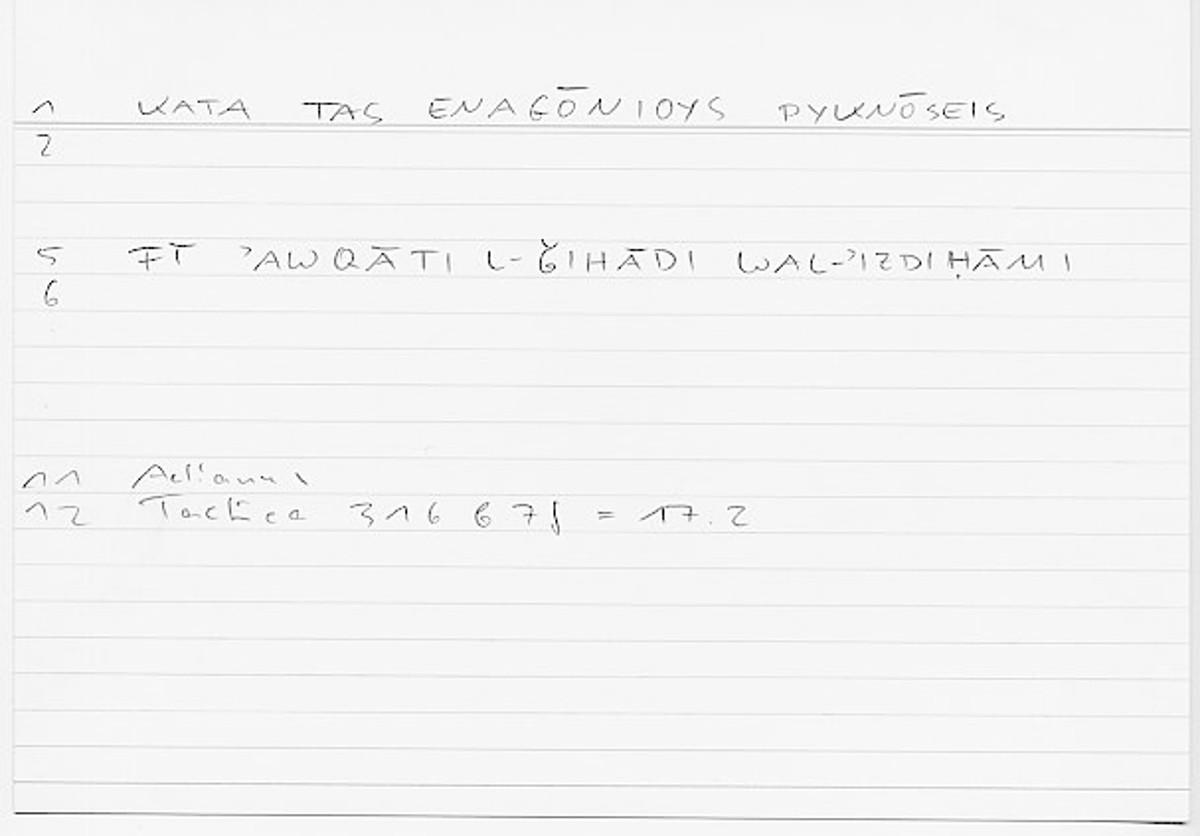 1 KATA TAS ENAGŌNIOYS PYKNŌSEIS
2
5 FĪ ʾAWQĀTI L-ǦIHĀDI WAL-ʾIZDIḤĀMI
6
11 Aelianus
12 Tactica 316 67f = 17.2